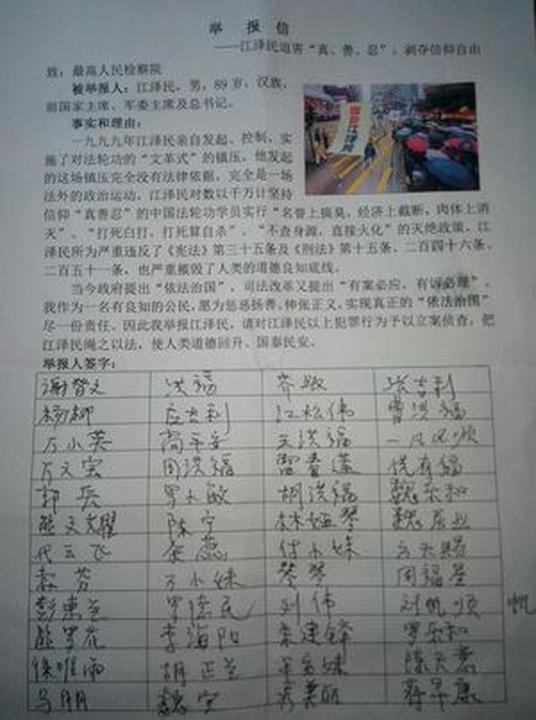 举 报 信
——江泽民迫害“真、善、忍”，剥夺信仰自由
致：最高人民检察院
被举报人：江泽民，男，89岁，汉族，
前国家主席、军委主席及总书记。
事实和理由：
一九九九年江泽民亲自发起、控制、实
施了对法轮功的“文革式”的镇压，他发起
的这场镇压完全没有法律依据，完全是一场
法外的政治运动，江泽民对数以千万计坚持
信仰“真善忍”的中国法轮功学员实行“名誉上搞臭，经济上截断，肉体上消
灭”、“打死白打，打死算自杀”、“不查身源，直接火化”的灭绝政策，江
泽民所为严重违反了《宪法》第三十五条及《刑法》第十五条、二百四十六条、
二百五十一条，也严重摧毁了人类的道德良知底线。
当今政府提出“依法治国”，司法改革又提出“有案必应，有诉必理”，
我作为一名有良知的公民，愿为惩恶扬善、伸张正义、实现真正的“依法治国”
尽一份责任。因此我举报江泽民，请对江泽民以上犯罪行为予以立案侦查，把
江泽民绳之以法，使人类道德回升、国泰民安。
举报人签字：
谢智文 洪福 齐敏 张吉利
杨柳 左吉利 江松伟 曹洪福
万小英 简平安 王洪福 一凡风顺
万文宏 周洪福
郭长 罗小敏 胡洪福 魏东和
熊文耀 陈宁 林娅琴
代云飞 余蕊 付小妹 方天赐
万小妹 琴琴 周福荃
彭惠兰 罗德民 刘伟 刘帆顺 帆
熊罗花 李海阳 朱建锋 罗东和
徐唯雨 胡正兰
马朋 魏宁 秀美丽 蒋早康